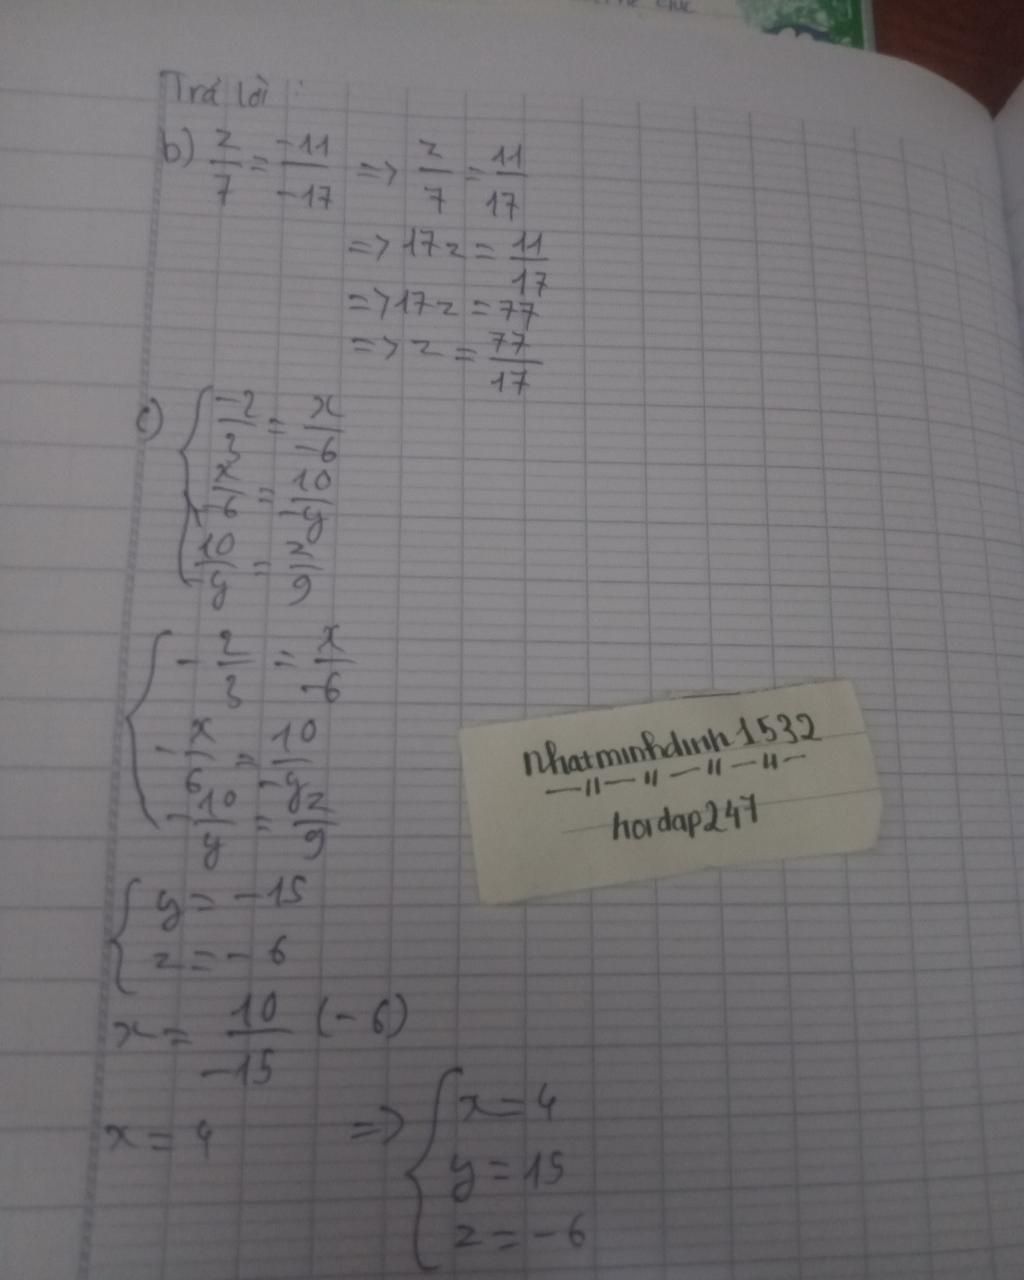 Trả lời :
b) z/7 = -11/-17 => z/7 = 11/17
=> 17z = 11/17
=> 17z = 77
=> z = 77/17
c) { -2/3 = x/-6
x/-6 = 10/-y
10/y = z/9
{ - 2/3 = x/-6
- x/6 = 10/-y
- 10/y = z/9
{ y = -15
z = -6
x = 10/-15 (-6)
x = 4 => { x = 4
y = 15
z = -6
nhatminhdinh1532
—"—"—"—"—
hoidap247